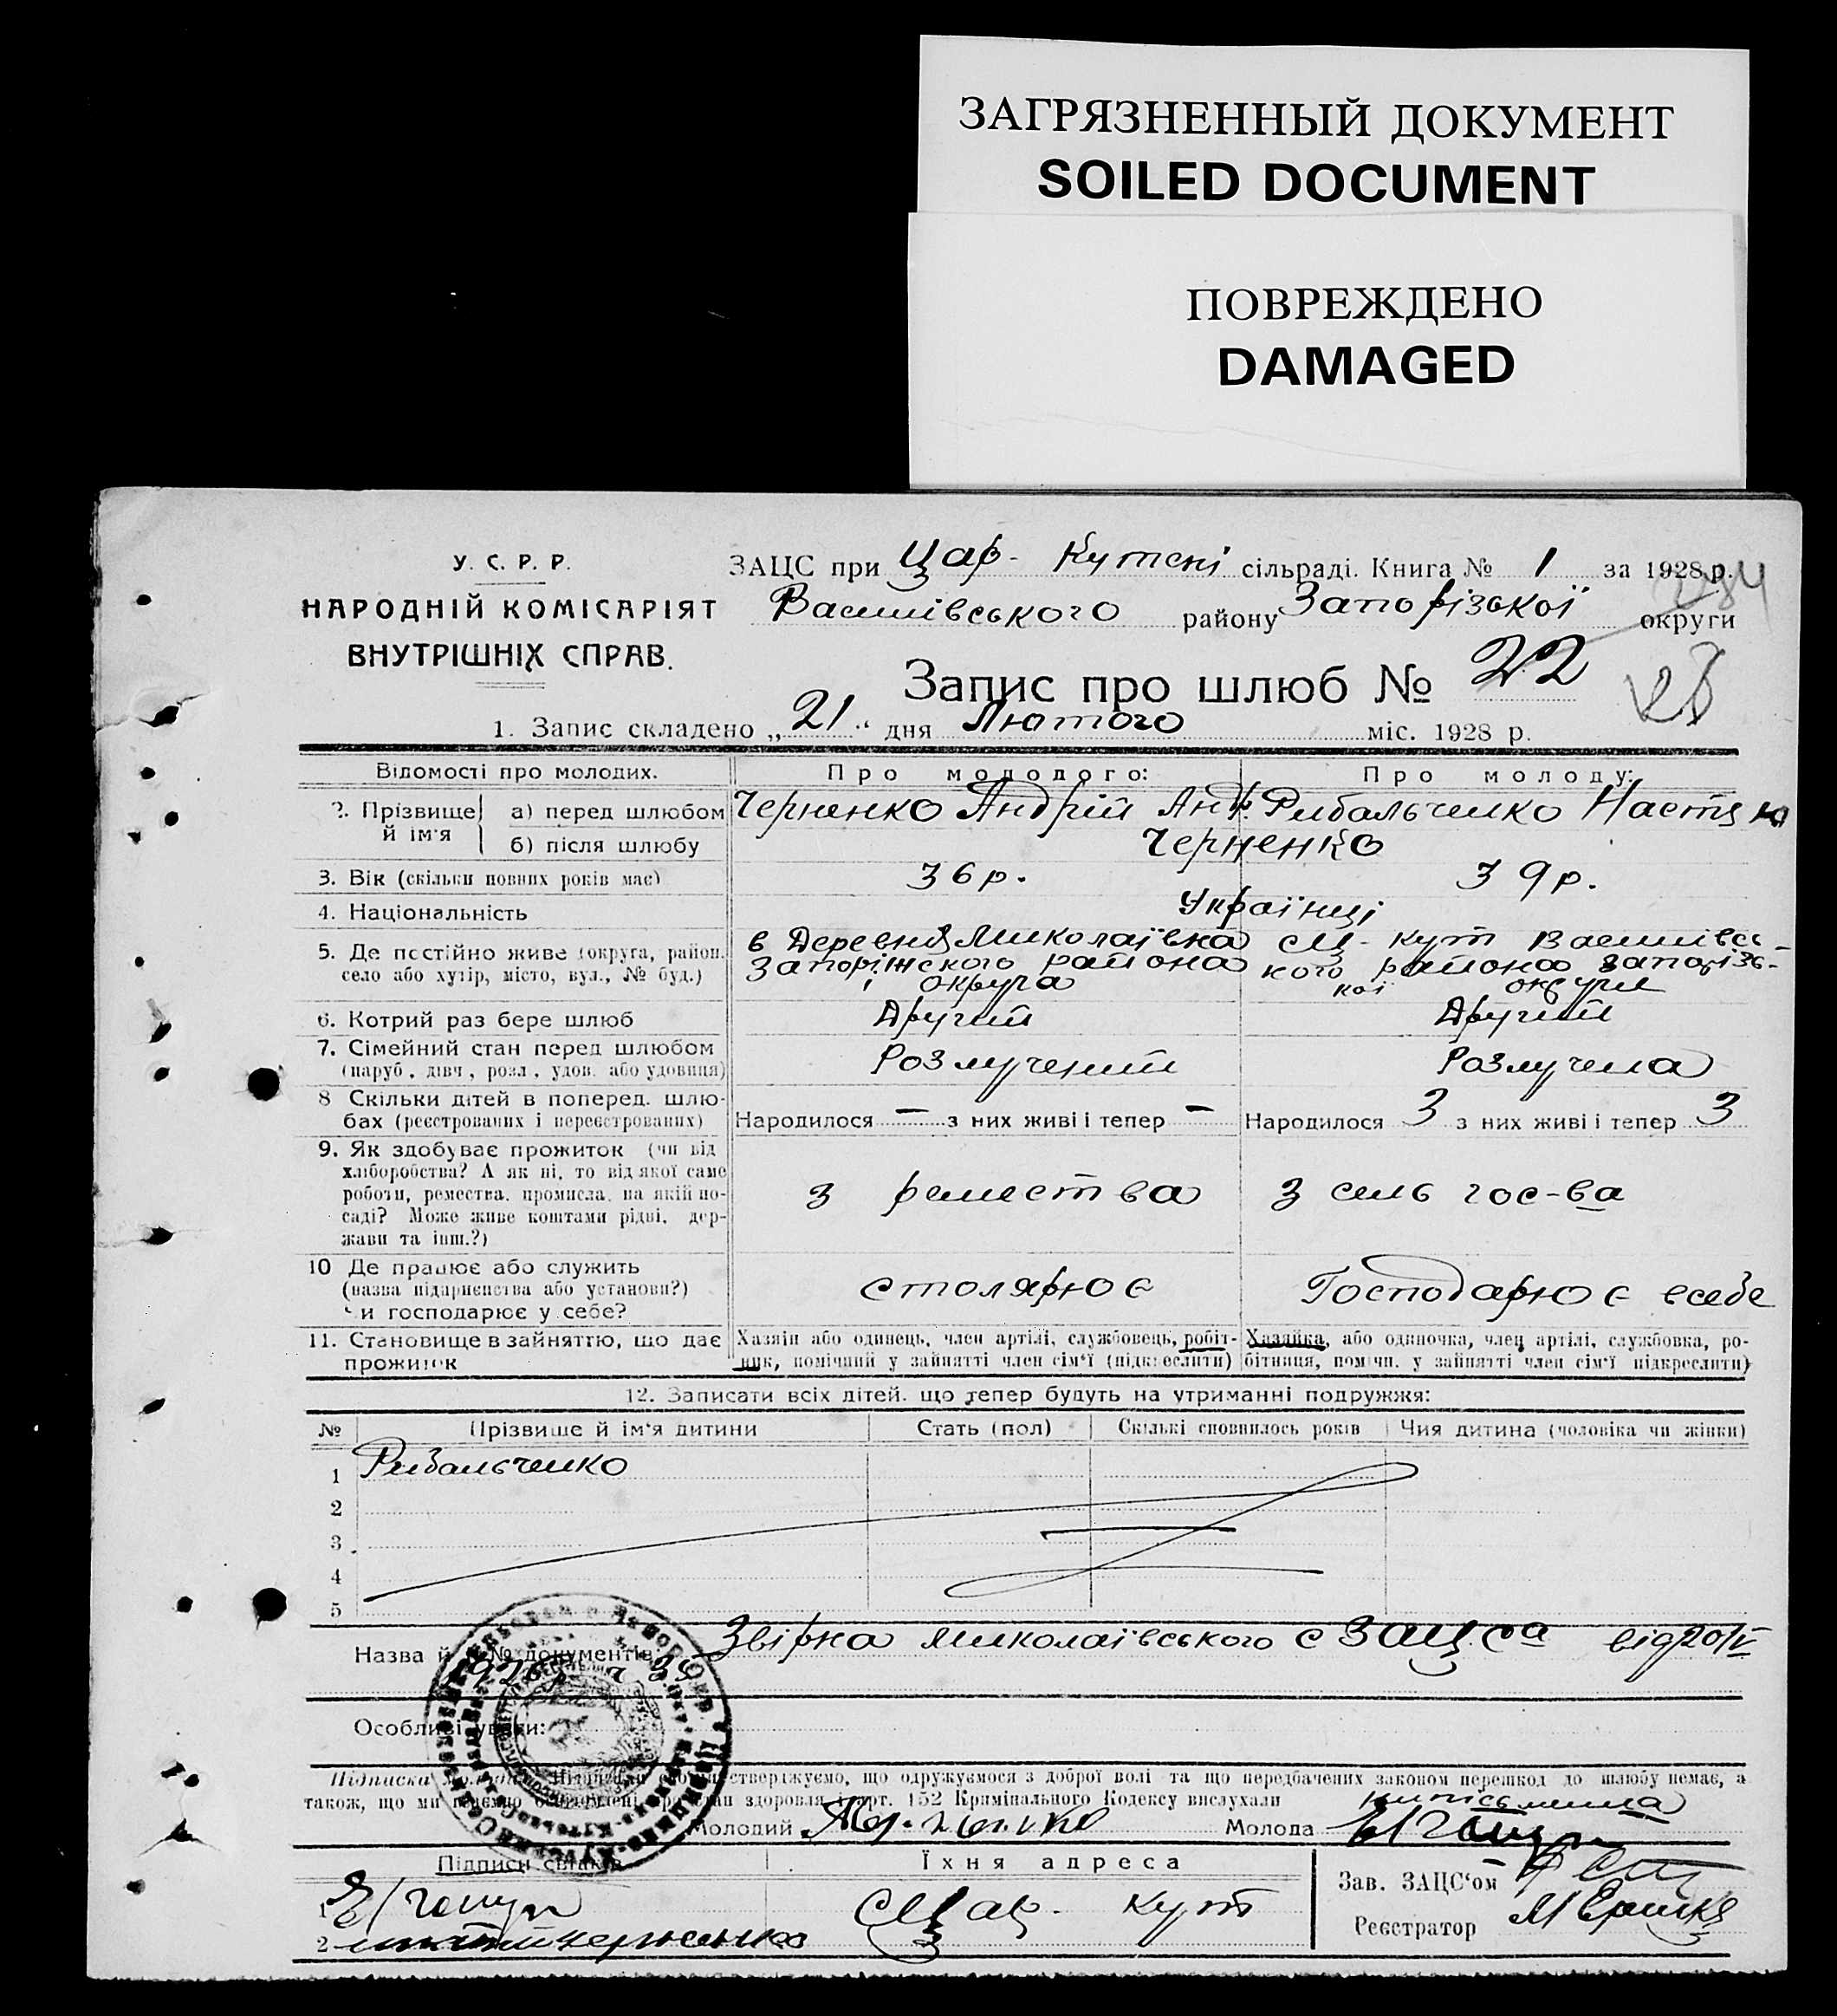 ЗАГРЯЗНЕННЫЙ ДОКУМЕНТ
SOILED DOCUMENT
ПОВРЕЖДЕНО
DAMAGED
У. С. Р. Р.
НАРОДНІЙ КОМІСАРІЯТ
ВНУТРІШНІХ СПРАВ.
ЗАЦС при Цар- Кутскі сільраді. Книга № 1 за 1928 р.
Василівського району Запорізької округи
Запис про шлюб № 22
28
1. Запис складено „21“ дня Лютого міс. 1928 р.
Відомості про молодих. Про молодого: Про молоду:
2. Прізвище й ім'я а) перед шлюбом Черненко Андрій Анд. Рибальченко Настя
б) після шлюбу Черненко
3. Вік (скільки повних років має) 36 р. 39 р.
4. Національність Українці
5. Де постійно живе (округа, район, в Деревня Миколаївка с Ц- Кут Василівсь-
село або хутір, місто, вул., № буд.) Запоріжского района кого района запорізь-
округа кої округи
6. Котрий раз бере шлюб Другий Другий
7. Сімейний стан перед шлюбом Розлучений Розлучена
(паруб., дівч., розл., удов. або удовиця)
8 Скільки дітей в поперед. шлю-
бах (реєстрованих і нереєстрованих) Народилося — з них живі і тепер — Народилося 3 з них живі і тепер 3
9. Як здобуває прожиток (чи від
хліборобства? А як ні, то від якої саме
роботи, ремества, промисла, на якій по- з ремества з сель гос-ва
саді? Може живе коштами рідні, дер-
жави та інш.?)
10 Де працює або служить
(назва підприємства або установи?) столярює Господарює всебе
чи господарює у себе?
11. Становище в зайняттю, що дає Хазяїн або одинець, член артілі, службовець, робіт- Хазяйка, або одиночка, член артілі, службовка, ро-
прожиток ник, помічний у зайнятті член сім'ї (підкреслити) бітниця, помічн. у зайнятті член сім'ї підкреслити)
12. Записати всіх дітей, що тепер будуть на утриманні подружжя:
№ Прізвище й ім'я дитини Стать (пол) Скількі сповнилось років Чия дитина (чоловіка чи жінки)
1 Рибальченко
2
3
4
5
Назва й № документів Звірка Миколаївського с ЗАЦ,са від 20/V
Особливі уваги:
Підписка стверджуємо, що одружуємося з доброї волі та що передбачених законом перешкод до шлюбу немає, а
також, що ми здоровля і арт. 152 Кримінального Кодексу вислухали
Молодий Молода
Підписи свідків Їхня адреса
1 с Цар- Кут Зав. ЗАЦС'ом
2 Реєстратор